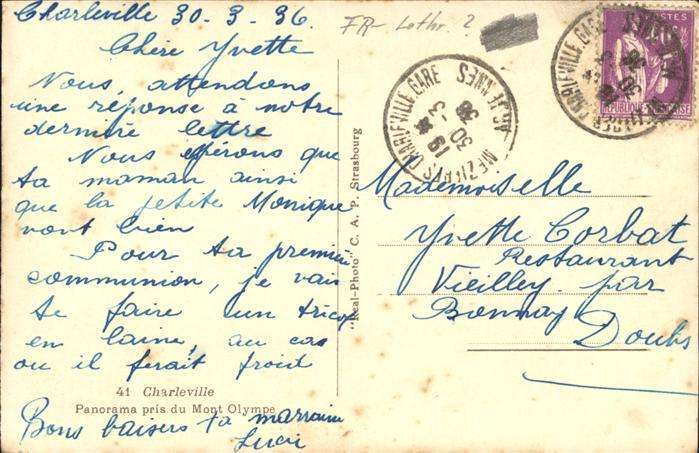 Charleville 30-3-36.
Chère Yvette
Nous, attendons
une réponse à notre
dernière lettre
Nous espérons que
ta maman ainsi
que la petite Monique
vont bien
Pour ta première
communion, je vais
te faire un tricot
en laine, au cas
ou il ferait froid
41 Charleville
Panorama pris du Mont Olympe
Bons baisers ta marraine
"Real-Photo" C. A. P. Strasbourg
FR- Lothr 2
MEZIERES CHARLEVILLE GARE
ARDENNES
30 - 3
36
POSTES
REPUBLIQUE FRANÇAISE
Mademoiselle
Yvette Corbat
Restaurant
Vieilley par
Bonnay
Doubs